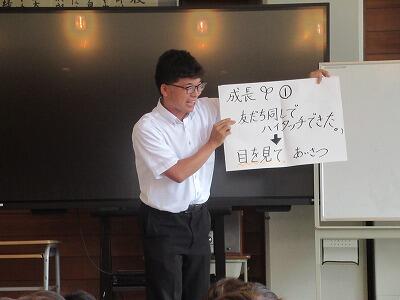 成長 ①
友だち同しで
ハイタッチできた。
目を見て あいさつ